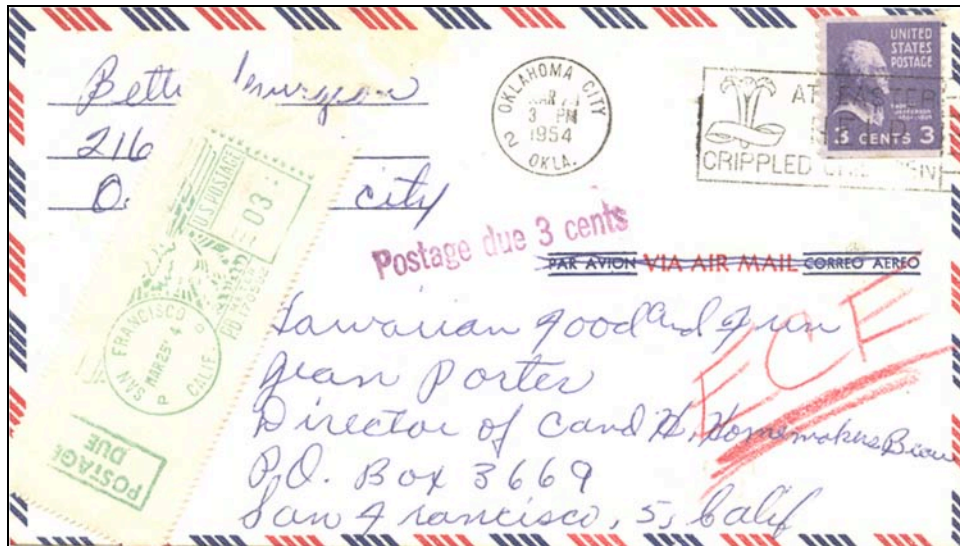 Bett
216
O. City
OKLAHOMA CITY
MAR
3 PM
1954
2 OKLA.
AT EASTER
HELP
CRIPPLED CHILDREN
UNITED
STATES
POSTAGE
3 CENTS 3
U.S. POSTAGE
03
SAN FRANCISCO
MAR 25 '54
P CALIF.
POSTAGE
DUE
Postage due 3 cents
PAR AVION VIA AIR MAIL CORREO AEREO
ECE
Hawaiian Food and Fun
Jean Porter
Director of C and H, Homemakers
P.O. Box 3669
San Francisco, 5, Calif